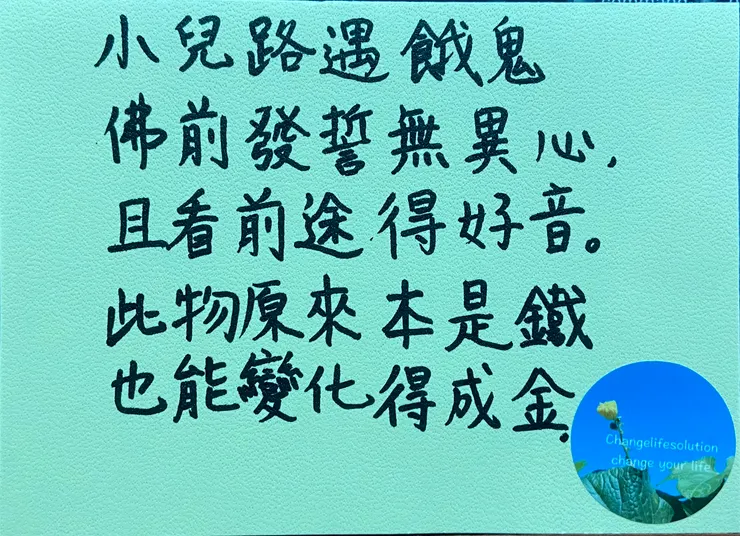 小兒路遇餓鬼
佛前發誓無異心,
且看前途得好音。
此物原來本是鐵
也能變化得成金.
Changelifesolution
change your life